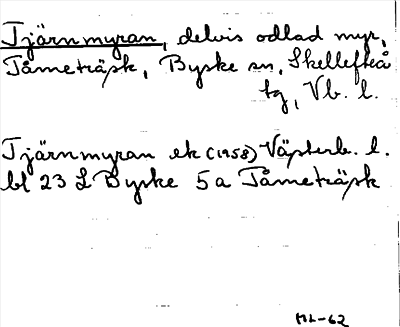 Tjärnmyran, delvis odlad myr,
Tåmeträsk, Byske sn, Skellefteå
tg, Vb. l.
Tjärnmyran ek (1958) Västerb. l.
bl 23 L Byske 5 a Tåmeträsk
ML-62